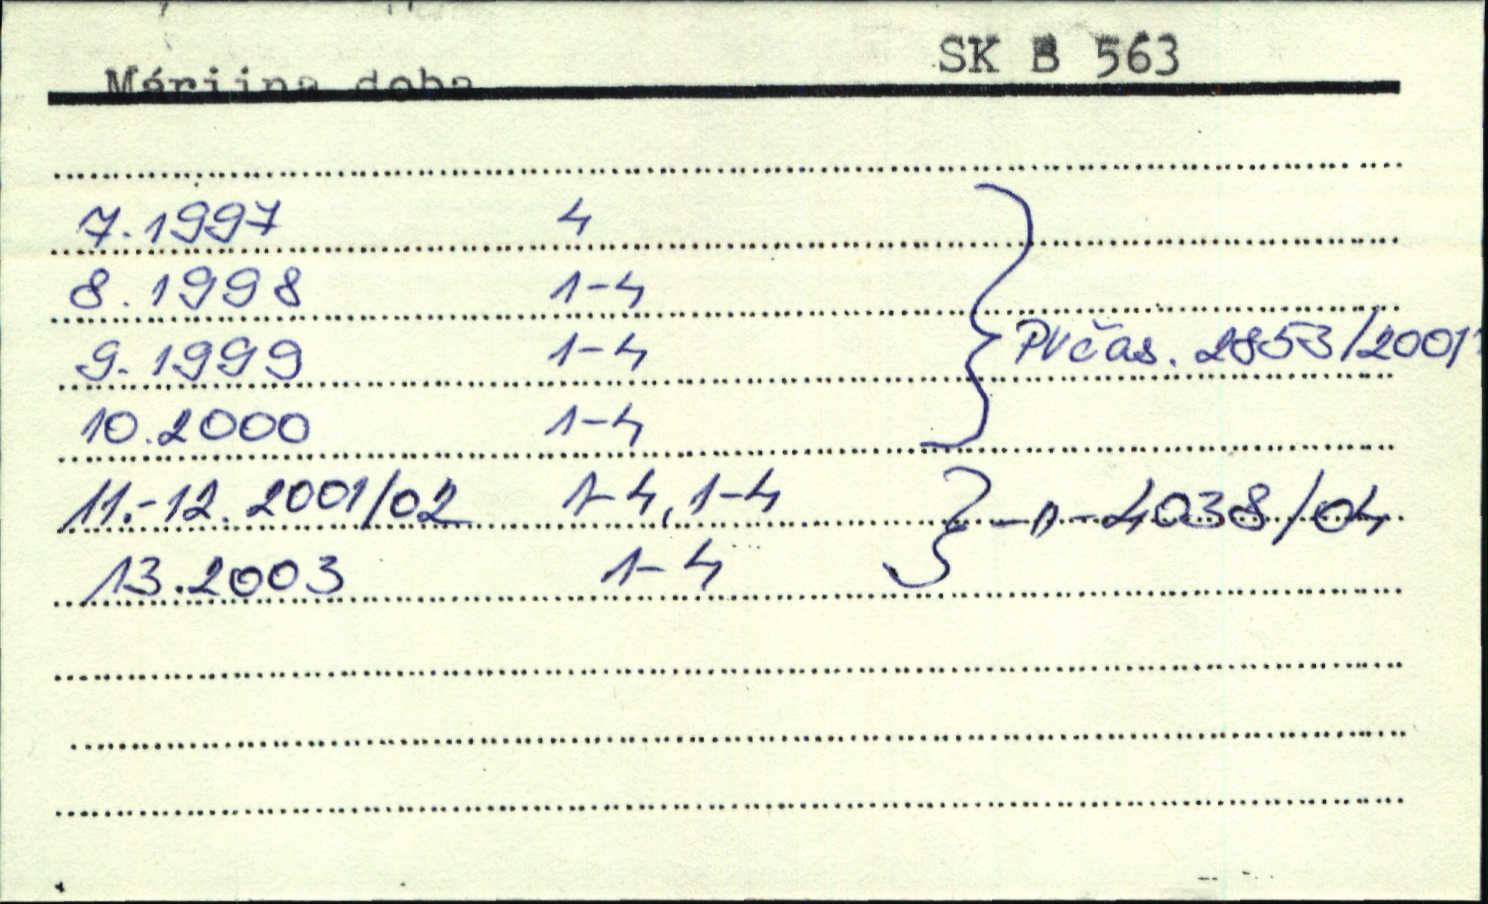 SK B 563
Máriina doba
7.1997 4
8.1998 1-4
9.1999 1-4 PVčas. 2853/2001
10.2000 1-4
11.-12. 2001/02 1-4, 1-4 -"- 4038/04
13.2003 1-4